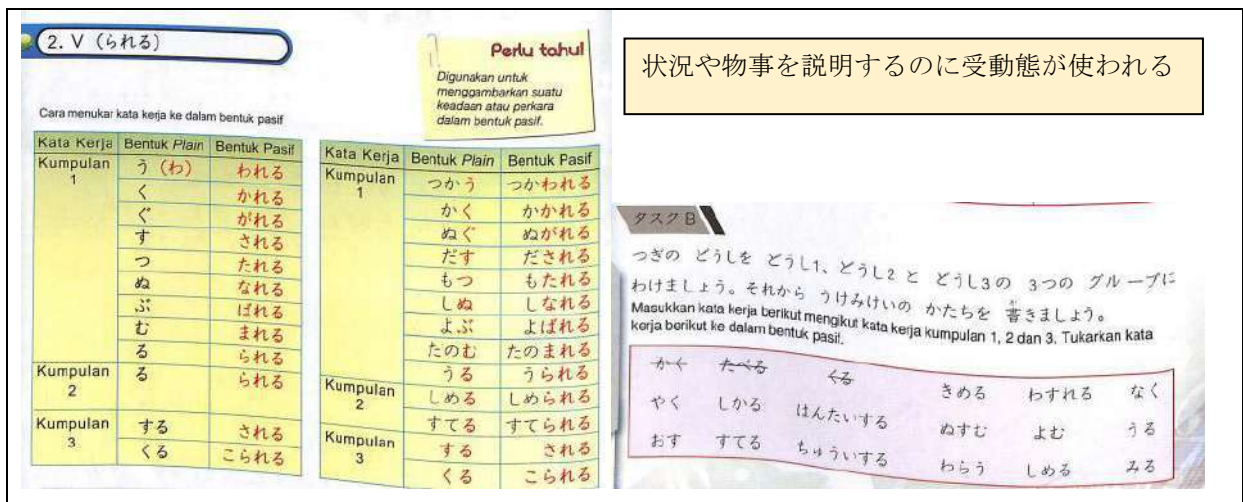 2. V (られる)
Perlu tahu!
Digunakan untuk
menggambarkan suatu
keadaan atau perkara
dalam bentuk pasif.
Cara menukar kata kerja ke dalam bentuk pasif
Kata Kerja Bentuk Plain Bentuk Pasif
Kumpulan 1 う (わ) われる
く かれる
ぐ がれる
す される
つ たれる
ぬ なれる
ぶ ばれる
む まれる
る られる
Kumpulan 2 る られる
Kumpulan 3 する される
くる こられる
Kata Kerja Bentuk Plain Bentuk Pasif
Kumpulan 1 つかう つかわれる
かく かかれる
ぬぐ ぬがれる
だす だされる
もつ もたれる
しぬ しなれる
よぶ よばれる
たのむ たのまれる
うる うられる
Kumpulan 2 しめる しめられる
すてる すてられる
Kumpulan 3 する される
くる こられる
状況や物事を説明するのに受動態が使われる
タスク B
つぎの どうしを どうし1、どうし2 と どうし3の 3つの グループに
わけましょう。それから うけみけいの かたちを 書きましょう。
Masukkan kata kerja berikut mengikut kata kerja kumpulan 1, 2 dan 3. Tukarkan kata
kerja berikut ke dalam bentuk pasif.
かく たべる くる きめる わすれる なく
やく しかる はんたいする ぬすむ よむ うる
おす すてる ちゅういする わらう しめる みる